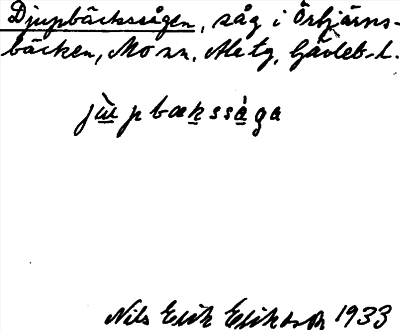 Djupbäckssågen, såg i Örtjärns-
bäcken, Mo sn, Ale tg, Gävleb. l.
jɯ̀pbæksságа
Nils Erik Eriksson 1933